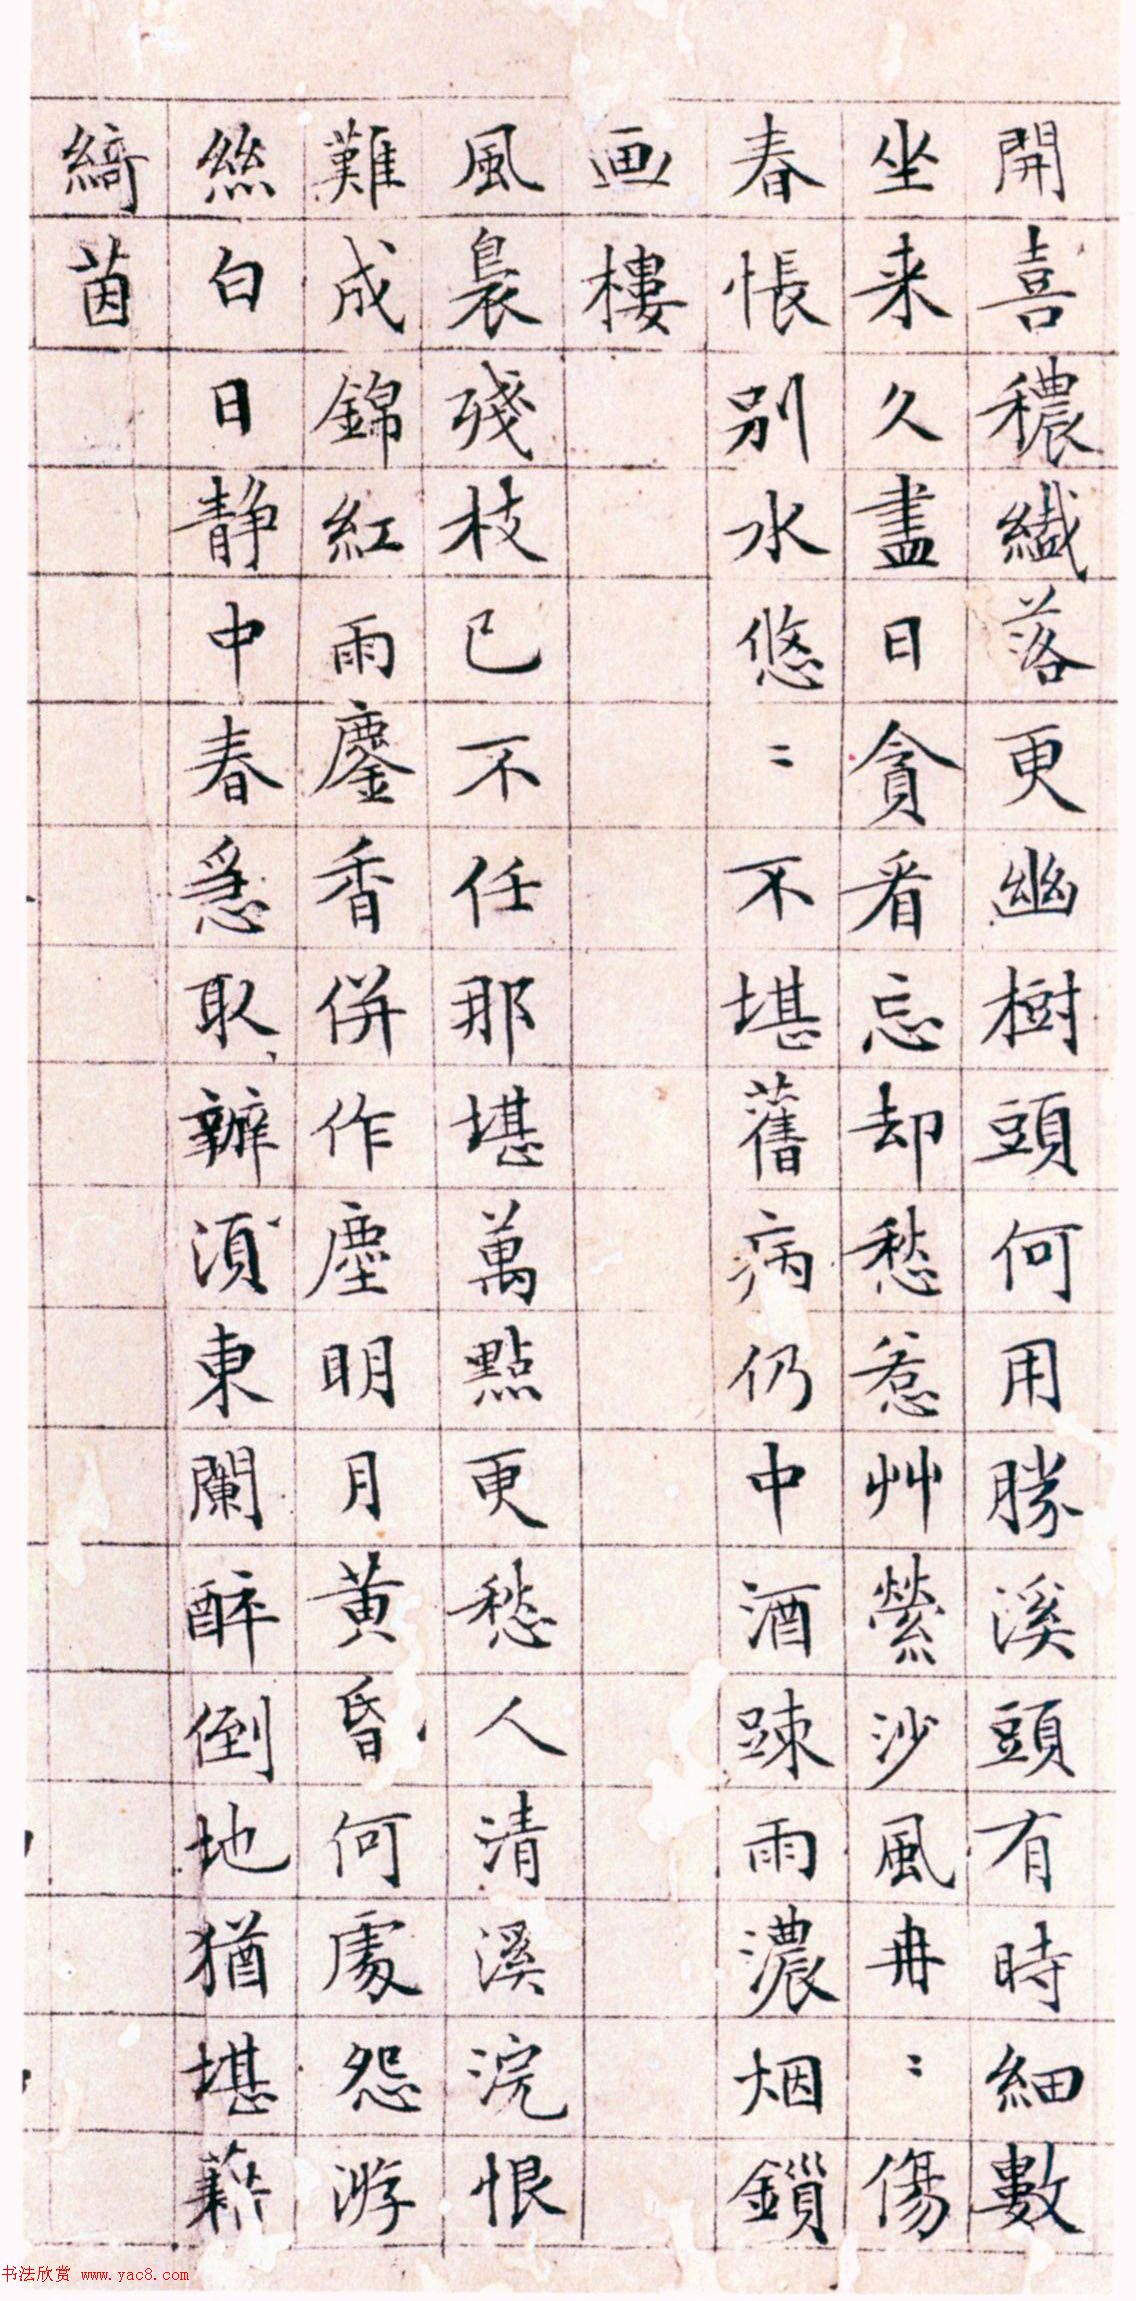 開喜穠纎落更幽樹頭何用勝溪頭有時細數
坐来久盡日貪看忘却愁惹艸縈沙風冉〻傷
春悵别水悠〻不堪舊病仍中酒踈雨濃烟鎖
画樓
風裊殘枝已不任那堪萬點更愁人清溪浣恨
難成錦紅雨鏖香併作塵明月黄昏何處怨游
絲白日静中春急取辦湏東闌醉倒地猶堪藉
綺茵
书法欣赏 www.yac8.com